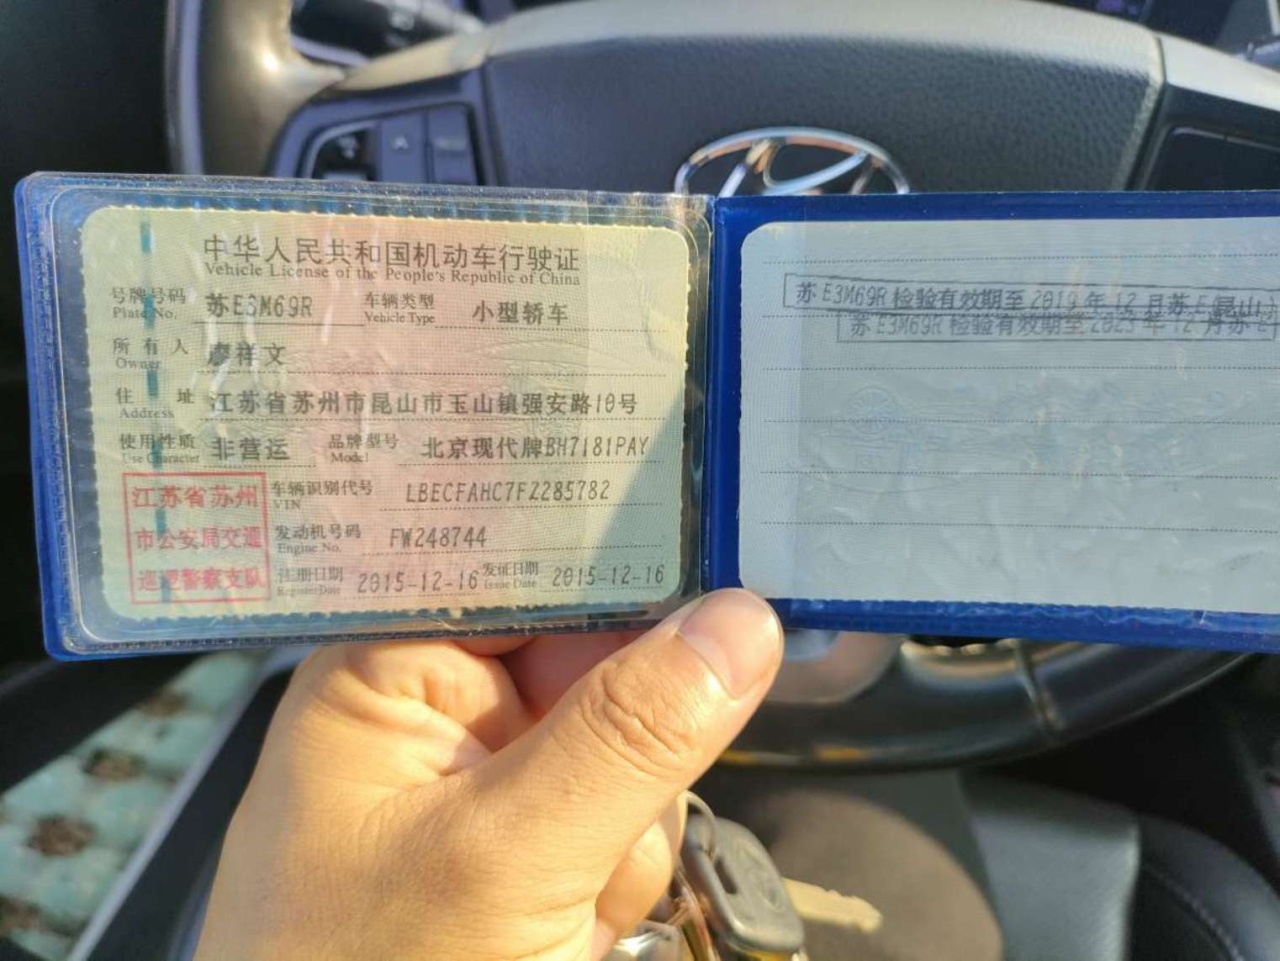 中华人民共和国机动车行驶证
Vehicle License of the People's Republic of China
号牌号码 苏E3M69R 车辆类型 小型轿车
Plate No. Vehicle Type
所有人 廖祥文
Owner
住址 江苏省苏州市昆山市玉山镇强安路10号
Address
使用性质 非营运 品牌型号 北京现代牌BH7181PAY
Use Character Model
江苏省苏州
市公安局交通
巡逻警察支队
车辆识别代号 LBECFAHC7FZ285782
VIN
发动机号码 FW248744
Engine No.
注册日期 2015-12-16 发证日期 2015-12-16
Register Date Issue Date
苏E3M69R 检验有效期至 2019 年 12 月 苏E(昆山)
苏E3M69R 检验有效期至 2023 年 12 月 苏E